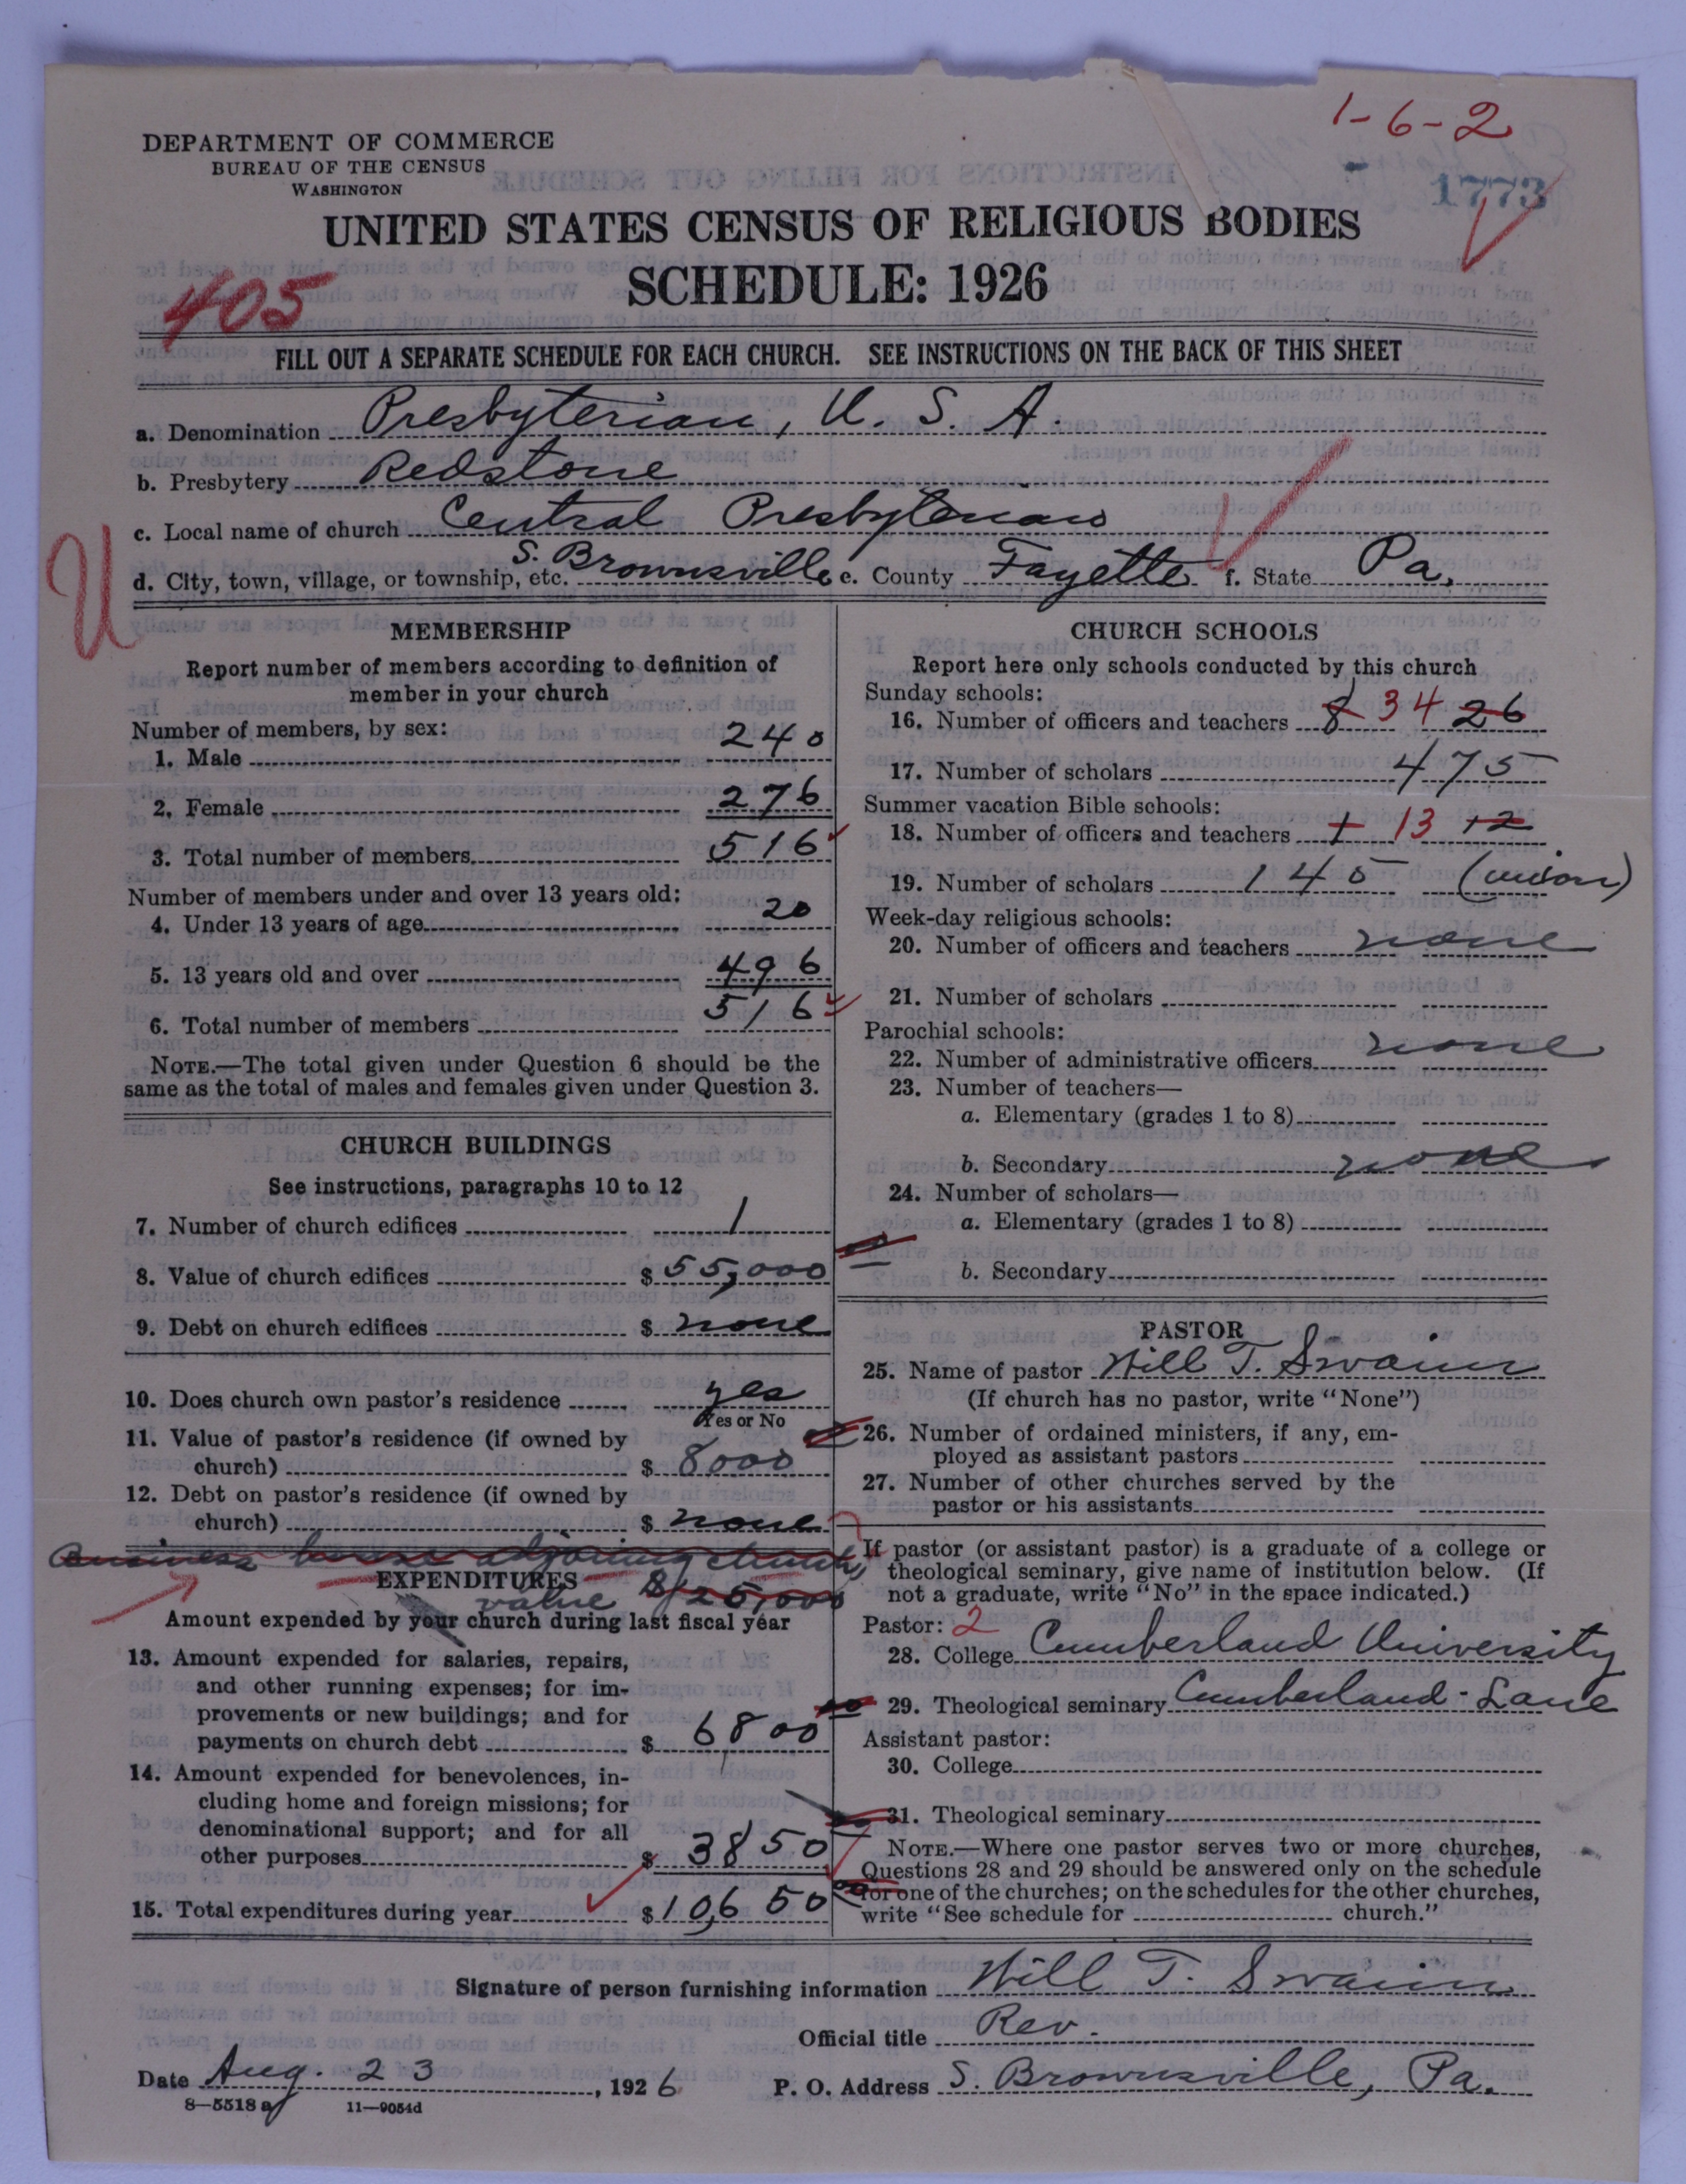 1-6-2
1773
DEPARTMENT OF COMMERCE
BUREAU OF THE CENSUS
WASHINGTON
UNITED STATES CENSUS OF RELIGIOUS BODIES
SCHEDULE: 1926
405
FILL OUT A SEPARATE SCHEDULE FOR EACH CHURCH. SEE INSTRUCTIONS ON THE BACK OF THIS SHEET
a. Denomination Presbyterian, U. S. A.
b. Presbytery Redstone
c. Local name of church Central Presbyterian
d. City, town, village, or township, etc. S. Brownsville e. County Fayette f. State Pa.
U
MEMBERSHIP
Report number of members according to definition of
member in your church
Number of members, by sex:
1. Male 240
2. Female 276
3. Total number of members 516
Number of members under and over 13 years old:
4. Under 13 years of age 20
5. 13 years old and over 496
6. Total number of members 516
NOTE.—The total given under Question 6 should be the
same as the total of males and females given under Question 3.
CHURCH BUILDINGS
See instructions, paragraphs 10 to 12
7. Number of church edifices 1
8. Value of church edifices $ 55,000
9. Debt on church edifices $ none
10. Does church own pastor's residence yes
Yes or No
11. Value of pastor's residence (if owned by
church) $ 8000
12. Debt on pastor's residence (if owned by
church) $ none
Business house adjoining church,
EXPENDITURES
value $25,000
Amount expended by your church during last fiscal year
13. Amount expended for salaries, repairs,
and other running expenses; for im-
provements or new buildings; and for
payments on church debt $ 6,800
14. Amount expended for benevolences, in-
cluding home and foreign missions; for
denominational support; and for all
other purposes $ 3850
15. Total expenditures during year $ 10,650
CHURCH SCHOOLS
Report here only schools conducted by this church
Sunday schools:
16. Number of officers and teachers 8 34 26
17. Number of scholars 475
Summer vacation Bible schools:
18. Number of officers and teachers 1 13 12
19. Number of scholars 145 (union)
Week-day religious schools:
20. Number of officers and teachers none
21. Number of scholars
Parochial schools:
22. Number of administrative officers none
23. Number of teachers—
a. Elementary (grades 1 to 8)
b. Secondary none
24. Number of scholars—
a. Elementary (grades 1 to 8)
b. Secondary
PASTOR
25. Name of pastor Will T. Swaim
(If church has no pastor, write "None")
26. Number of ordained ministers, if any, em-
ployed as assistant pastors
27. Number of other churches served by the
pastor or his assistants
If pastor (or assistant pastor) is a graduate of a college or
theological seminary, give name of institution below. (If
not a graduate, write "No" in the space indicated.)
Pastor: 2
28. College Cumberland University
29. Theological seminary Cumberland - Lane
Assistant pastor:
30. College
31. Theological seminary
NOTE.—Where one pastor serves two or more churches,
Questions 28 and 29 should be answered only on the schedule
for one of the churches; on the schedules for the other churches,
write "See schedule for church."
Signature of person furnishing information Will T. Swaim
Official title Rev.
Date Aug. 23, 1926 P. O. Address S. Brownsville, Pa.
8—5518 a 11—9054d